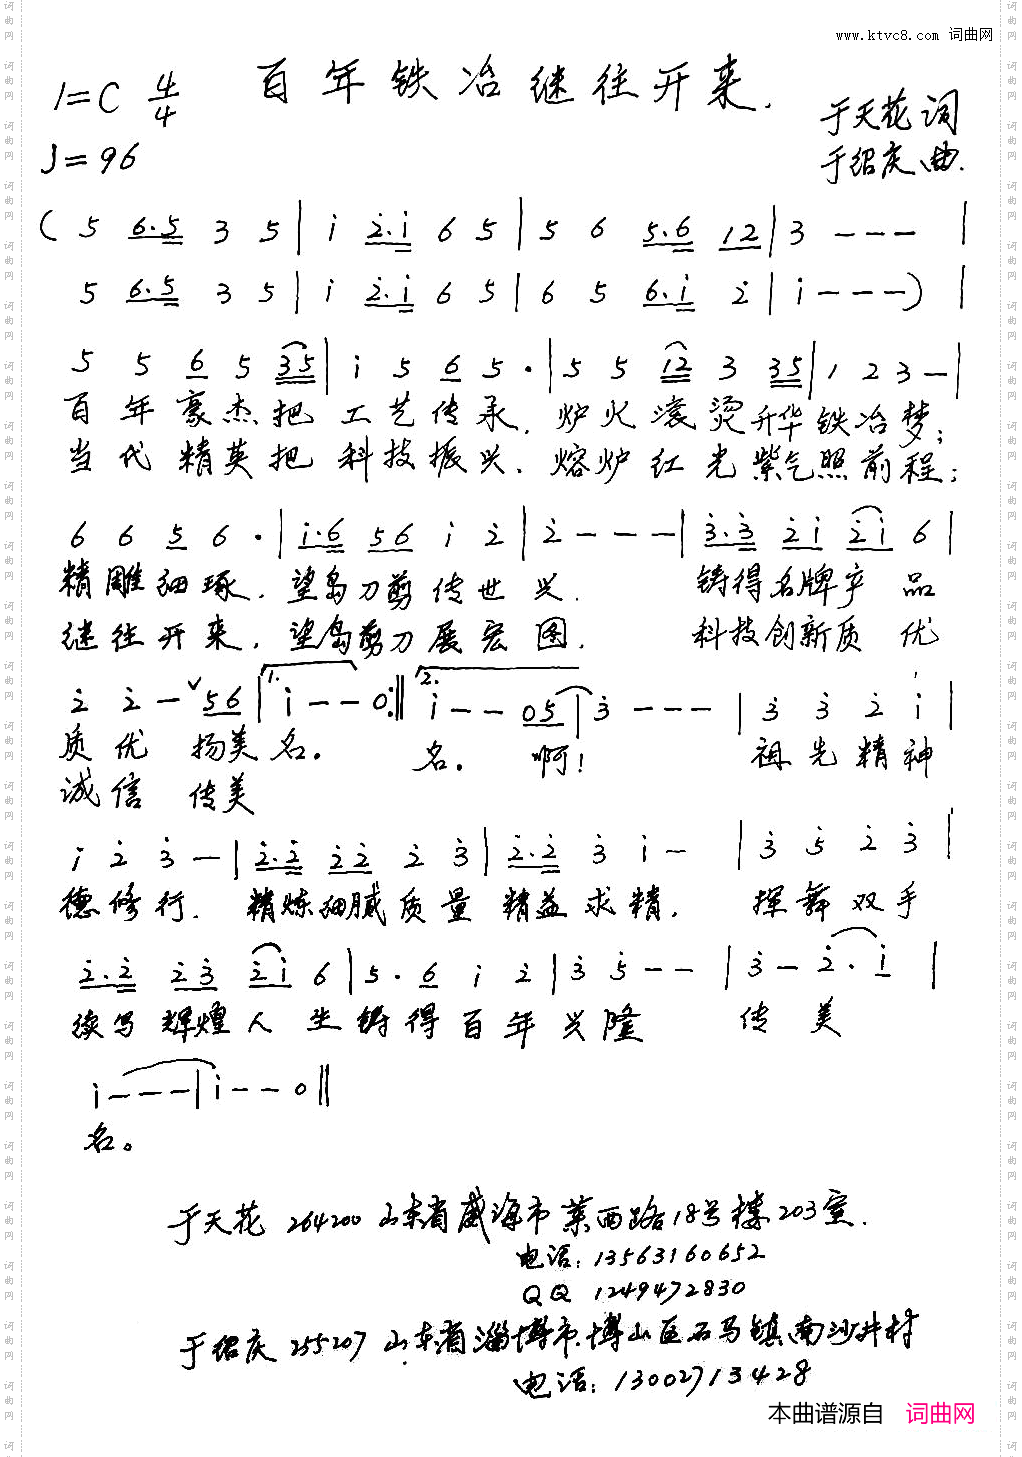 www.ktvc8.com 词曲网
百年铁冶继往开来.
1=C 4/4
于天花词
♩=96
于绍庆曲.
( 5 6.5 3 5 | i 2.i 6 5 | 5 6 5.6 12 | 3 --- |
5 6.5 3 5 | i 2.i 6 5 | 6 5 6.i 2 | i --- ) |
5 5 6 5 35 | i 5 6 5 · | 5 5 12 3 35 | 1 2 3 — |
百年豪杰把工艺传承.炉火滚烫升华铁冶梦;
当代精英把科技振兴.熔炉红光紫气照前程;
6 6 5 6 · | i·6 56 i 2 | 2 --- | 3·3 2i 2i 6 |
精雕细琢.望岛刀剪传世兴. 铸得名牌产品
继往开来.望岛剪刀展宏图. 科技创新质优
2 2 — ∨ 56 | 1. i -- 0 :‖ 2. i -- 05 | 3 --- | 3 3 2 i |
质优 扬美名。 名。 啊! 祖先精神
诚信 传美
i 2 3 — | 2·2 22 2 3 | 2·2 3 i — | 3 5 2 3 |
德修行. 精炼细腻质量精益求精. 挥舞双手
2·2 23 2i 6 | 5· 6 i 2 | 3 5 -- | 3 — 2· i |
续写辉煌人生铸得百年兴隆 传美
i --- | i -- 0 ‖
名。
于天花 264200 山东省威海市莱西路18号楼203室.
电话: 13563160652
QQ 1249472830
于绍庆 255207 山东省淄博市博山区石马镇南沙井村
电话: 13002713428
本曲谱源自 词曲网